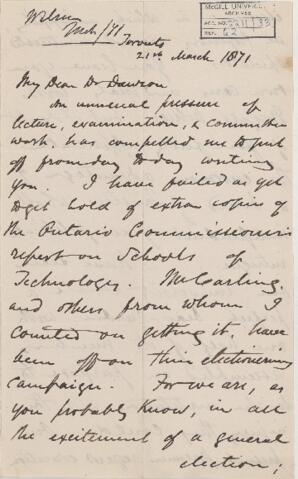 Wilson
Mch/71
McGILL UNIVERSITY
ARCHIVES
ACC. NO. 2211/33
REF. 62
Toronto
21st March 1871
My Dear Dr Dawson
An unusual pressure of
lecture, examination, & committee
work, has compelled me to put
off from day to day writing
you. I have failed as yet
to get hold of extra copies of
the Ontario Commissioners
report on Schools of
Technology. Mr Carling
and others from whom I
counted on getting it, have
been off on their electioneering
campaign. For we are, as
you probably know, in all
the excitement of a general
election;